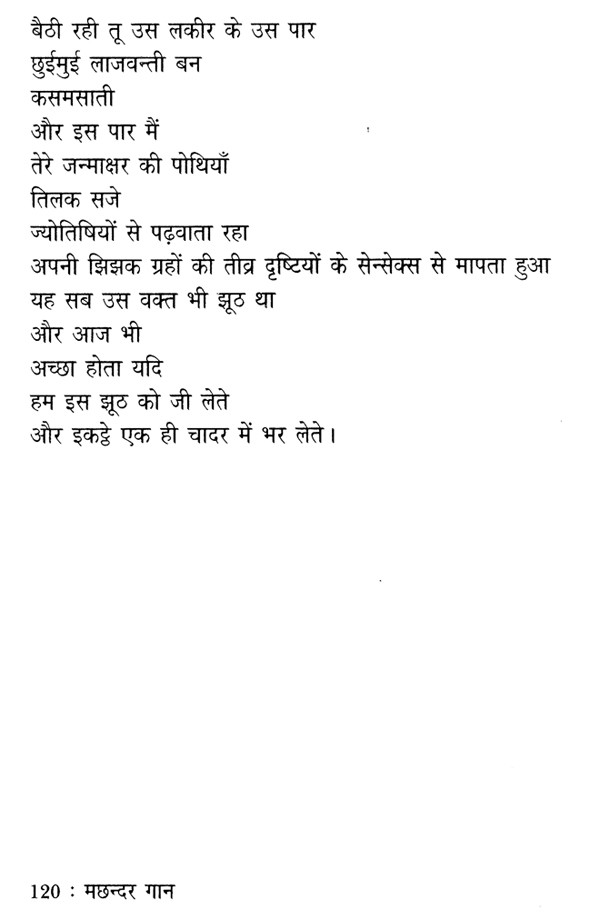 बैठी रही तू उस लकीर के उस पार
छुईमुई लाजवन्ती बन
कसमसाती
और इस पार मैं
तेरे जन्माक्षर की पोथियाँ
तिलक सजे
ज्योतिषियों से पढ़वाता रहा
अपनी झिझक ग्रहों की तीव्र दृष्टियों के सेन्सेक्स से मापता हुआ
यह सब उस वक्त भी झूठ था
और आज भी
अच्छा होता यदि
हम इस झूठ को जी लेते
और इकट्ठे एक ही चादर में भर लेते।
120 : मछन्दर गान